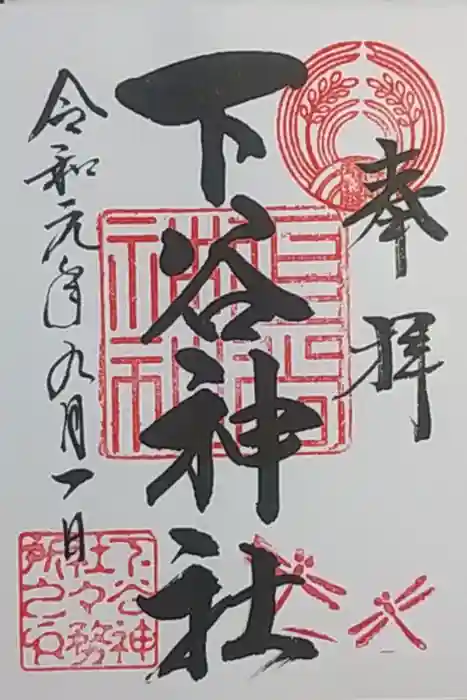 奉拝
下谷神社
令和元年九月一日
下谷神
社々務
所之印